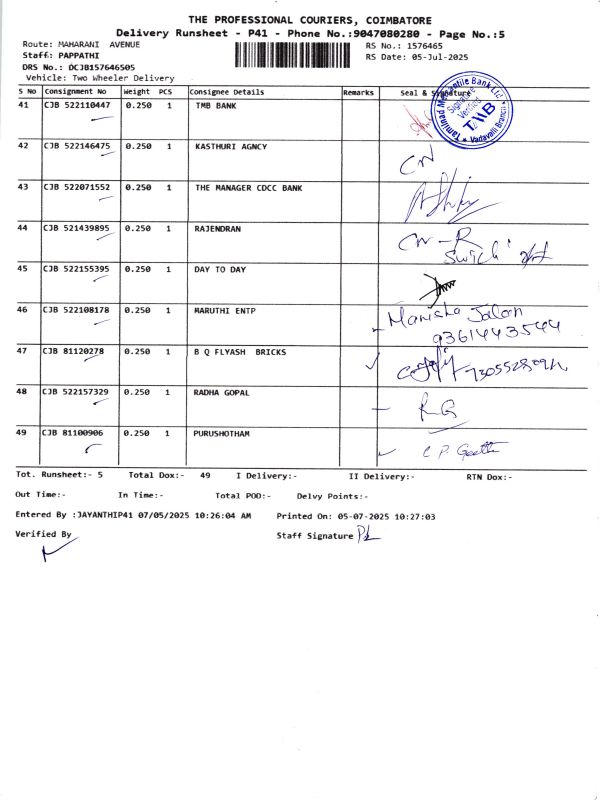 THE PROFESSIONAL COURIERS, COIMBATORE
Delivery Runsheet - P41 - Phone No.:9047080280 - Page No.:5
Route: MAHARANI AVENUE
RS No.: 1576465
Staff: PAPPATHI
RS Date: 05-Jul-2025
DRS No.: DCJB157646505
Vehicle: Two Wheeler Delivery
S No Consignment No Weight PCS Consignee Details Remarks Seal & Signature
41 CJB 522110447 0.250 1 TMB BANK
Tamilnad Mercantile Bank Ltd.
Signature Verified
TMB
Vadavalli Branch
42 CJB 522146475 0.250 1 KASTHURI AGNCY
43 CJB 522071552 0.250 1 THE MANAGER CDCC BANK
44 CJB 521439895 0.250 1 RAJENDRAN
45 CJB 522155395 0.250 1 DAY TO DAY
46 CJB 522108178 0.250 1 MARUTHI ENTP Manisha Jalan
9361443544
47 CJB 81120278 0.250 1 B Q FLYASH BRICKS
48 CJB 522157329 0.250 1 RADHA GOPAL RG
49 CJB 81100906 0.250 1 PURUSHOTHAM C P Geetha
Tot. Runsheet:- 5 Total Dox:- 49 I Delivery:- II Delivery:- RTN Dox:-
Out Time:- In Time:- Total POD:- Delvy Points:-
Entered By :JAYANTHIP41 07/05/2025 10:26:04 AM Printed On: 05-07-2025 10:27:03
Verified By Staff Signature